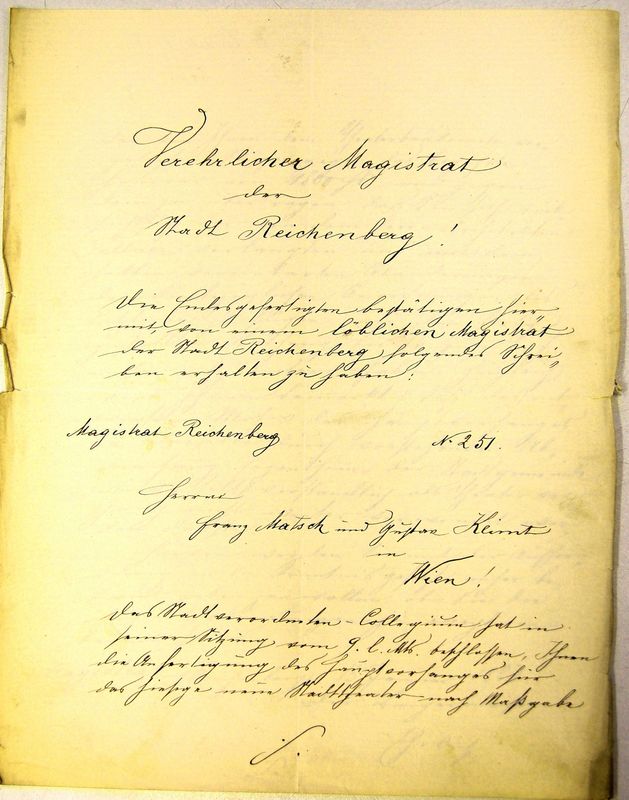 Verehrlicher Magistrat
der
Stadt Reichenberg!
Die Endesgefertigten bestätigen hier„
mit, von einem löblichen Magistrat
der Stadt Reichenberg folgendes Schrei„
ben erhalten zu haben:
Magistrat Reichenberg N. 251.
Herrn
Franz Matsch und Gustav Klimt
in
Wien!
Das Stadtverordneten-Collegium hat in
seiner Sitzung vom 9. l. Mts. beschlossen, Ihnen
die Anfertigung des Hauptvorhanges für
das hiesige neue Stadttheater nach Maßgabe